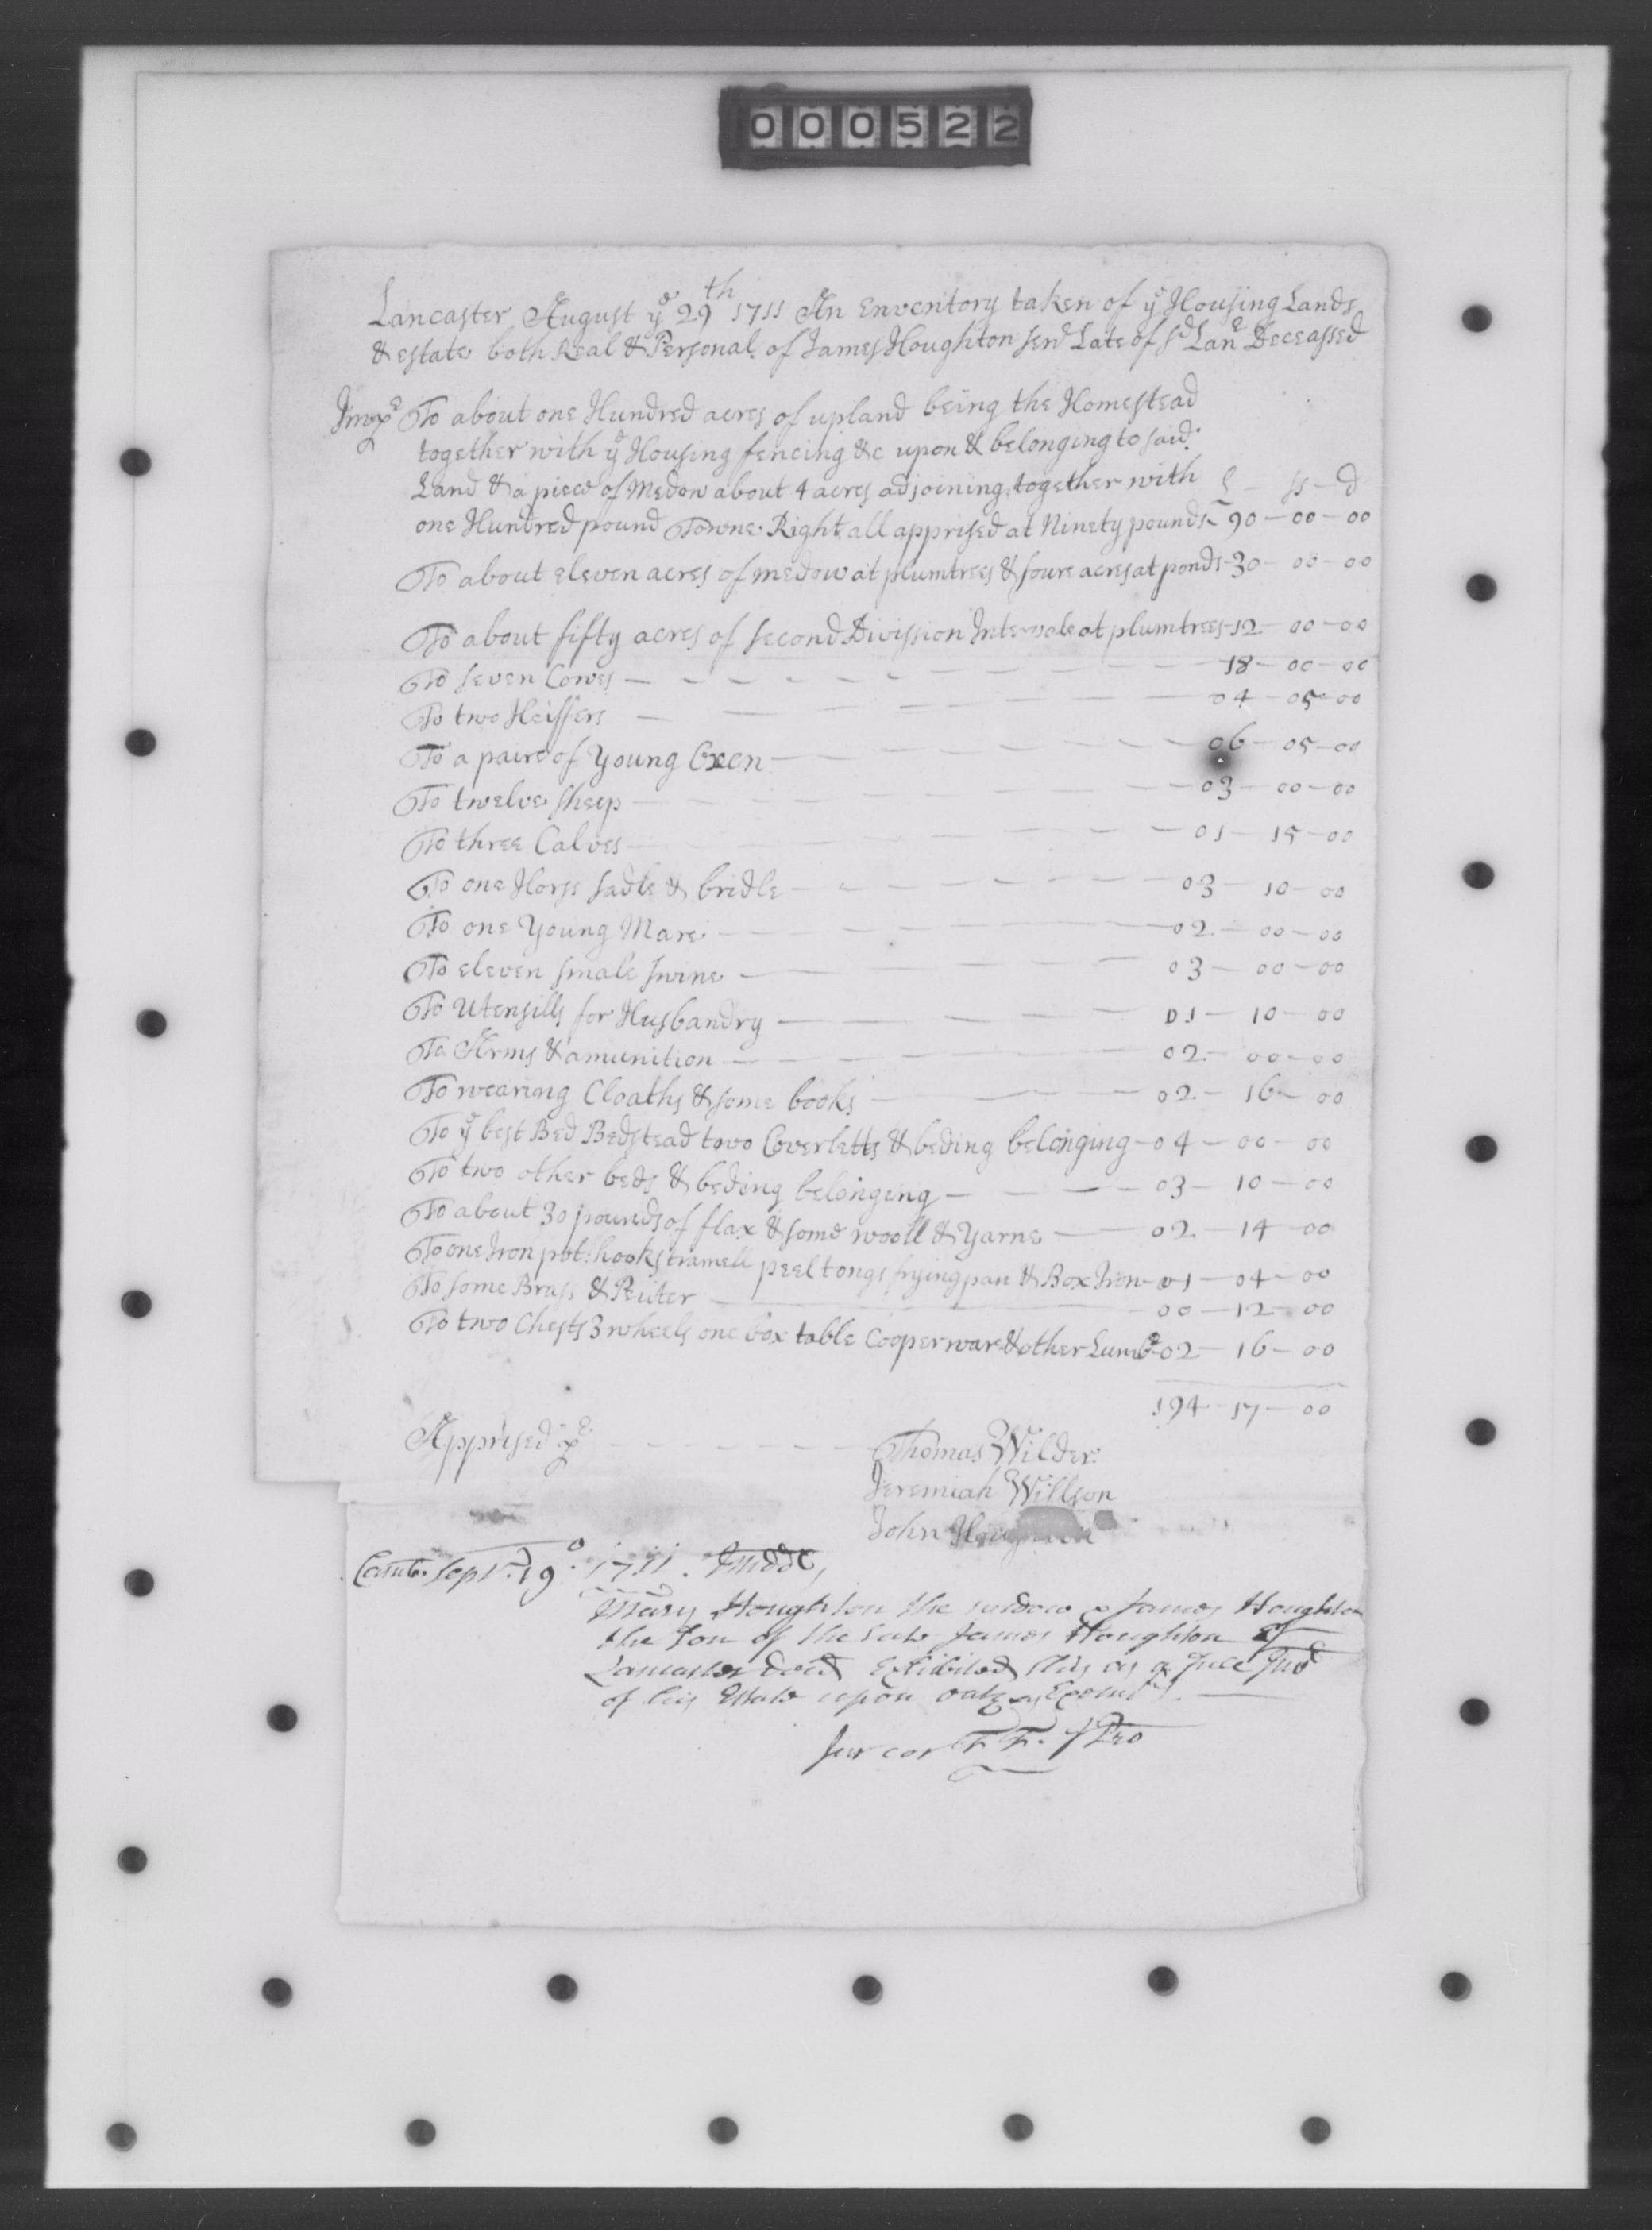 000522
Lancaster August yͤ 29th 1711 An Enventory taken of yͤ Housing Lands
& estate both Real & Personal of James Houghton senr Late of sd Lane Deceassed
Impr To about one Hundred acres of upland being the Homestead
together with yͤ Housing fencing &c upon & belonging to said
Land & a piece of Medow about 4 acres adjoining together with £ – ss – d
one Hundred pound Towne Right all apprised at Ninety pounds – 90 – 00 – 00
To about eleven acres of medow at plumtrees & foure acres at ponds – 30 – 00 – 00
To about fifty acres of second Division Intervale at plumtrees – 12 – 00 – 00
To seven Cowes – 18 – 00 – 00
To two Heiffers – 04 – 05 – 00
To a paire of Young Oxen – 06 – 05 – 00
To twelve sheep – 03 – 00 – 00
To three Calves – 01 – 15 – 00
To one Horss sadle & bridle – 03 – 10 – 00
To one Young Mare – 02 – 00 – 00
To eleven smale swine – 03 – 00 – 00
To Utensills for Husbandry – 01 – 10 – 00
To Arms & amunition – 02 – 00 – 00
To wearing Cloaths & some books – 02 – 16 – 00
To yͤ best Bed Bedstead two Coverletts & beding belonging – 04 – 00 – 00
To two other beds & beding belonging – 03 – 10 – 00
To about 30 pounds of flax & some wooll & Yarne – 02 – 14 – 00
To one Iron pot hooks tramell peel tongs frying pan & Box Iron – 01 – 04 – 00
To some Brass & Peuter – 00 – 12 – 00
To two Chests 3 wheels one box table Cooper ware & other Lumbr – 02 – 16 – 00
194 – 17 – 00
Apprised pr Thomas Wilder
Jeremiah Willson
John Houghton
Camb. Sept. 19o. 1711. Midd
Mary Houghton the widow & James Houghton
the Son of the Late James Houghton of
Lancaster Decd Exhibited this as a true Invo
of his Estate upon oath as
Jur cor F F. J Pro